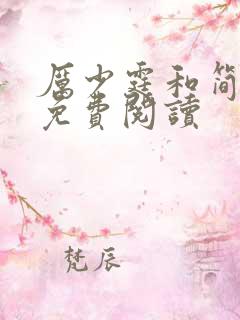 厲少霆和简
免費閱讀
梵辰